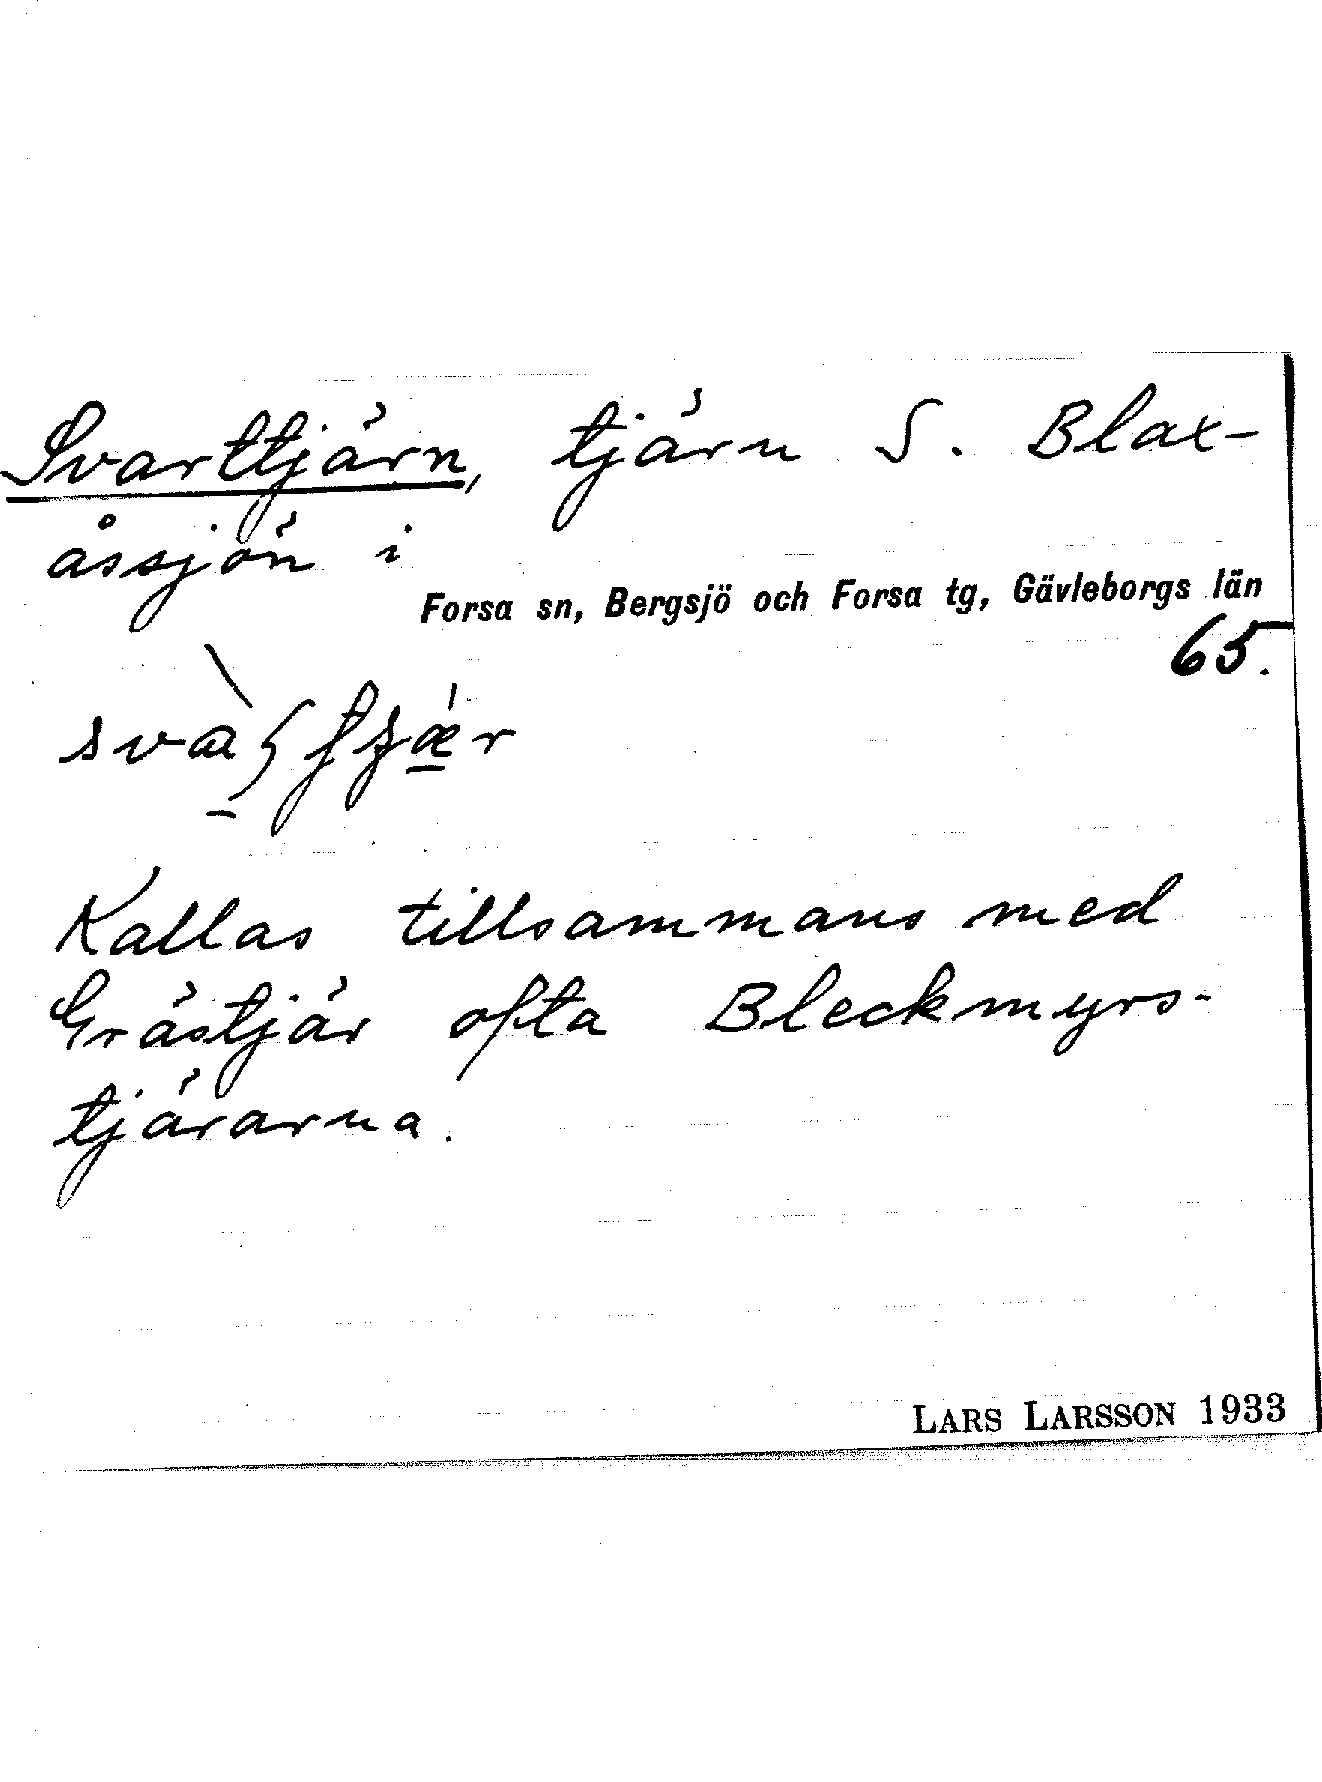 Svarttjärn, tjärn S. Blax-
åssjön i
Forsa sn, Bergsjö och Forsa tg, Gävleborgs län
65.
Kallas tillsammans med
Grästjär ofta Bleckmyrs-
tjärarna.
LARS LARSSON 1933